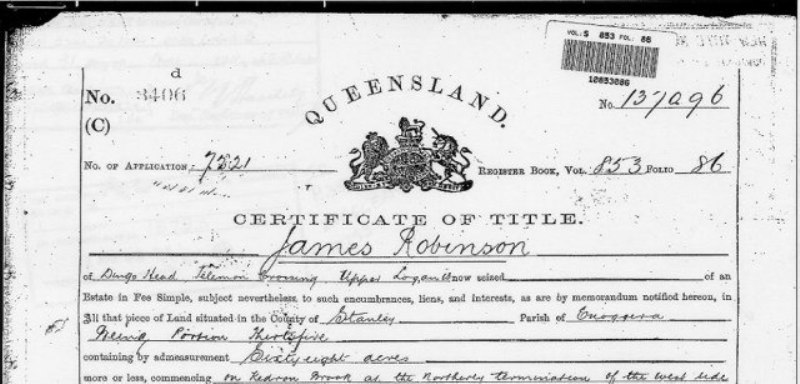 VOL: S 853 FOL: 86
10853086
d
No. 3406
QUEENSLAND.
No. 137096
(C)
No. of Application 7321
Register Book, Vol. 853 Folio 86
CERTIFICATE OF TITLE.
James Robinson
of Dingo Head Telemon Crossing Upper Logan is now seized of an
Estate in Fee Simple, subject nevertheless to such encumbrances, liens, and interests, as are by memorandum notified hereon, in
All that piece of Land situated in the County of Stanley Parish of Enoggera
Being Portion Thirtyfive
containing by admeasurement Sixty eight acres
more or less, commencing on Kedron Brook at the Northerly termination of the west side